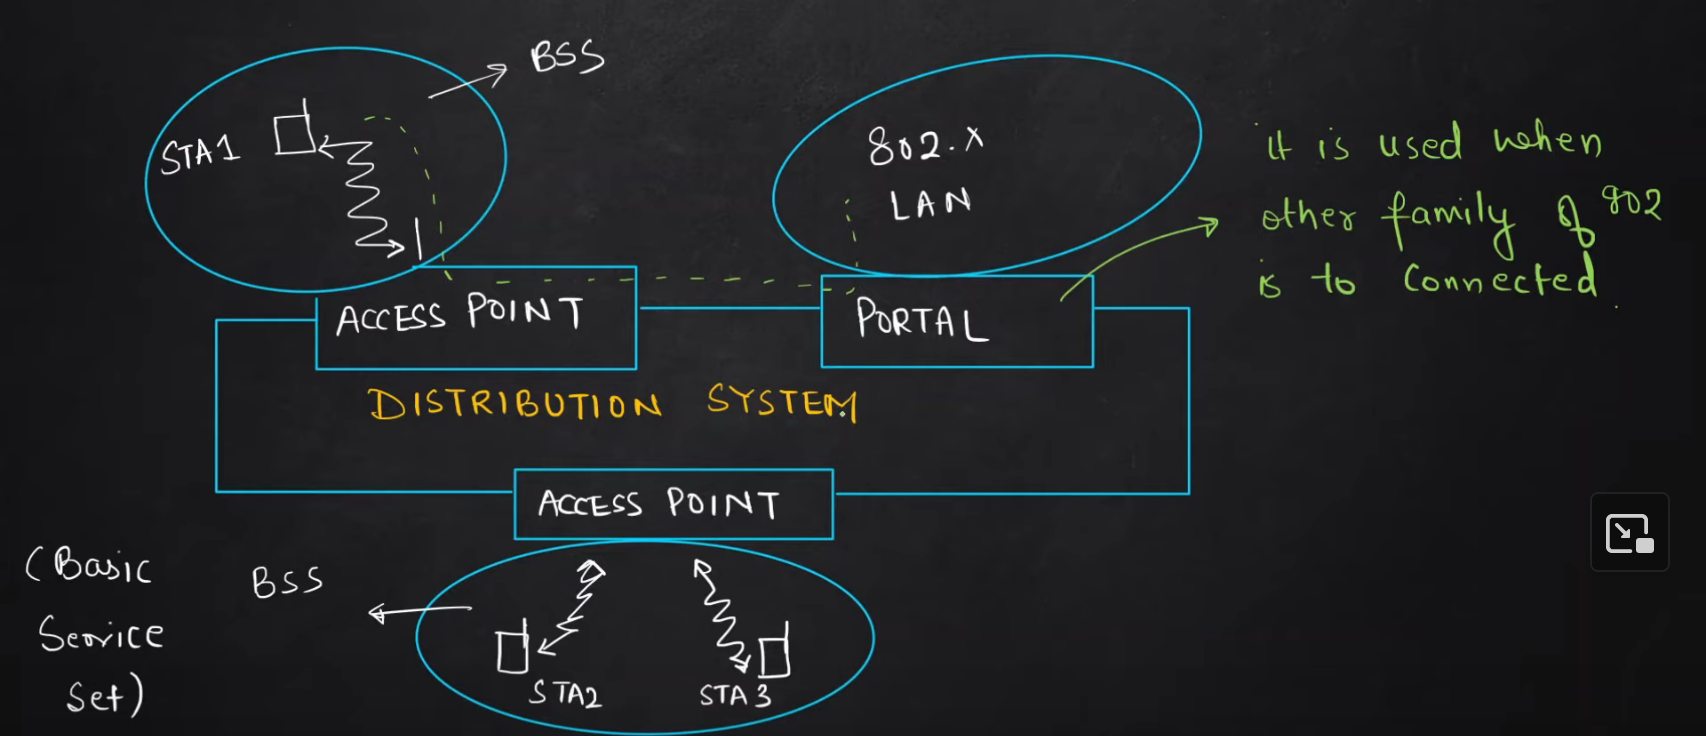 BSS
STA1
802.X
LAN
it is used when
other family of 802
is to connected.
ACCESS POINT
PORTAL
DISTRIBUTION SYSTEM
ACCESS POINT
(Basic
Service
Set)
BSS
STA2
STA3